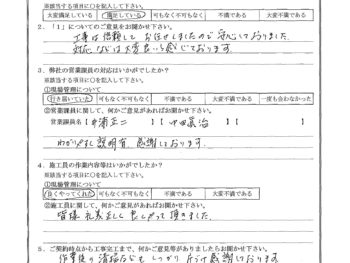 ※該当する項目に○を記入して下さい。
大変満足している 満足している 可も無く不可も無く 不満である 大変不満である
2．「1」についてのご意見をお聞かせ下さい。
工事は信頼して お任せしましたので安心しておりました。
対応 などは大変良いと感じております。
3．弊社の営業課員の対応はいかがでしたか？
※該当する項目に○を記入して下さい。
①現場管理について
行き届いていた 可も無く不可も無く 不満である 大変不満である 一度も会わなかった
②営業課員に関して、何かご意見があればお聞かせ下さい。
営業課員名【 】【 】【 】
わかりやすく説明有、感謝しております。
4．施工員の作業内容等はいかがでしたか？
※該当する項目に○を記入して下さい。
①現場管理について
良くやってくれた 可も無く不可も無く 不満である 大変不満である
②施工員に関して、何かご意見があればお聞かせ下さい。
皆様 礼義正しく 良くやって頂きました。
5．ご契約時点から工事完工まで、何かご意見等がありましたらお聞かせ下さい。
作業後の清掃なども しっかり 感謝しております